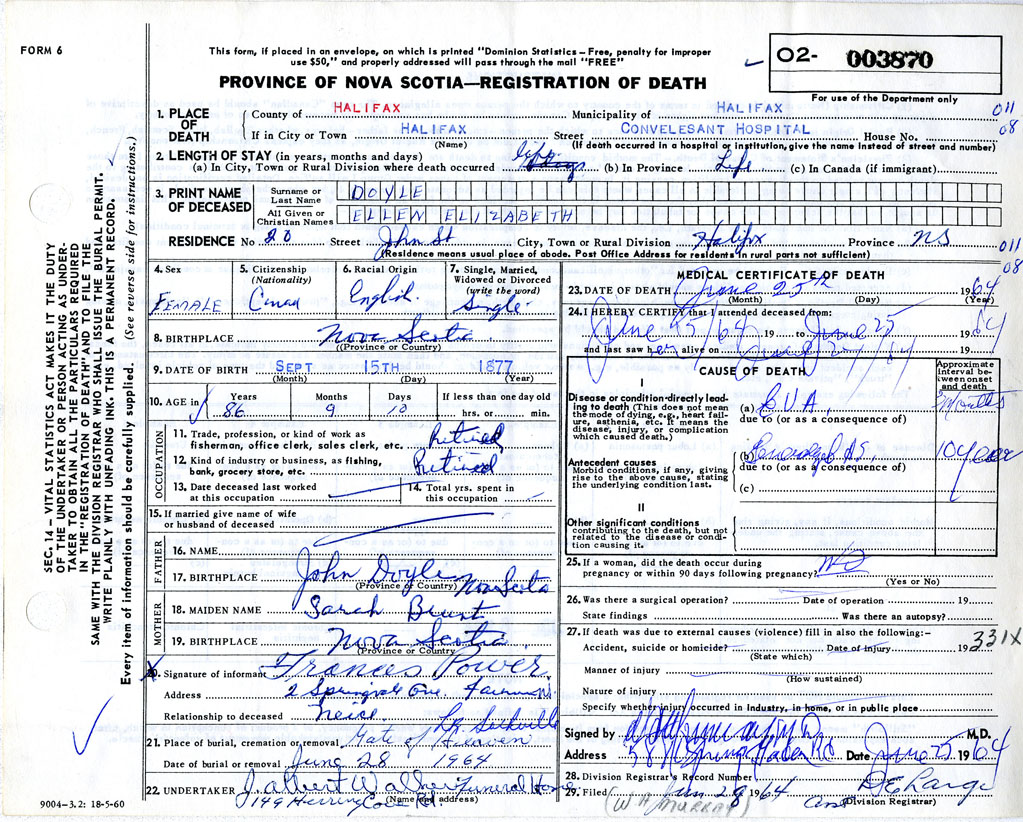 FORM 6
This form, if placed in an envelope, on which is printed "Dominion Statistics – Free, penalty for improper
use $50," and properly addressed will pass through the mail "FREE"
PROVINCE OF NOVA SCOTIA—REGISTRATION OF DEATH
O2- 003870
For use of the Department only
1. PLACE OF DEATH County of HALIFAX Municipality of HALIFAX 011
If in City or Town HALIFAX (Name) Street CONVELESANT HOSPITAL House No. 08
(If death occurred in a hospital or institution, give the name instead of street and number)
2. LENGTH OF STAY (in years, months and days)
(a) In City, Town or Rural Division where death occurred life (b) In Province Life (c) In Canada (if immigrant)
3. PRINT NAME OF DECEASED Surname or Last Name DOYLE
All Given or Christian Names ELLEN ELIZABETH
RESIDENCE No. 20 Street John St City, Town or Rural Division Halifax Province NS 011
(Residence means usual place of abode. Post Office Address for residents in rural parts not sufficient) 08
4. Sex FEMALE
5. Citizenship (Nationality) Canad
6. Racial Origin English
7. Single, Married, Widowed or Divorced (write the word) Single
8. BIRTHPLACE Nova Scotia
(Province or Country)
9. DATE OF BIRTH SEPT 15TH 1877
(Month) (Day) (Year)
10. AGE in Years 86 Months 9 Days 10 If less than one day old hrs. or min.
OCCUPATION
11. Trade, profession, or kind of work as fisherman, office clerk, sales clerk, etc. Retired
12. Kind of industry or business, as fishing, bank, grocery store, etc. Retired
13. Date deceased last worked at this occupation
14. Total yrs. spent in this occupation
15. If married give name of wife or husband of deceased
FATHER
16. NAME John Doyle
17. BIRTHPLACE Nova Scotia
(Province or Country)
MOTHER
18. MAIDEN NAME Sarah Brunt
19. BIRTHPLACE Nova Scotia
(Province or Country)
20. Signature of informant Frances Power
Address 2 Springvale Ave. Fairmount
Relationship to deceased Neice. Lr Sackville
21. Place of burial, cremation or removal Gate of Heaven
Date of burial or removal June 28 1964
22. UNDERTAKER J. Albert Walker Funeral Home
149 Herring Cove Rd. (Name and address)
9004–3.2: 18-5-60
MEDICAL CERTIFICATE OF DEATH
23. DATE OF DEATH June 25th 1964
(Month) (Day) (Year)
24. I HEREBY CERTIFY that I attended deceased from:
June /64 19 to June 25 1964
and last saw her alive on 19
CAUSE OF DEATH
Approximate interval between onset and death
I
Disease or condition directly leading to death (This does not mean the mode of dying, e.g., heart failure, asthenia, etc. It means the disease, injury, or complication which caused death.)
(a) C.V.A. months
due to (or as a consequence of)
Antecedent causes
Morbid conditions, if any, giving rise to the above cause, stating the underlying condition last.
(b) A.S. 10 year
due to (or as a consequence of)
(c)
II
Other significant conditions
contributing to the death, but not related to the disease or condition causing it.
25. If a woman, did the death occur during pregnancy or within 90 days following pregnancy? NO
(Yes or No)
26. Was there a surgical operation? Date of operation 19
State findings Was there an autopsy?
27. If death was due to external causes (violence) fill in also the following:–
Accident, suicide or homicide? Date of injury 19 331X
(State which)
Manner of injury
(How sustained)
Nature of injury
Specify whether injury occurred in industry, in home, or in public place
Signed by M.D.
Address 58 Spring Garden Rd Date June 25 1964
28. Division Registrar's Record Number
29. Filed Jun 28 1964
(Division Registrar)
(W A MURRAY)
SEC. 14 – VITAL STATISTICS ACT MAKES IT THE DUTY
OF THE UNDERTAKER OR PERSON ACTING AS UNDER-
TAKER TO OBTAIN ALL THE PARTICULARS REQUIRED
IN THE "REGISTRATION OF DEATH" AND TO FILE THE
SAME WITH THE DIVISION REGISTRAR WHO SHALL ISSUE THE BURIAL PERMIT.
WRITE PLAINLY WITH UNFADING INK. THIS IS A PERMANENT RECORD.
Every item of information should be carefully supplied. (See reverse side for instructions.)